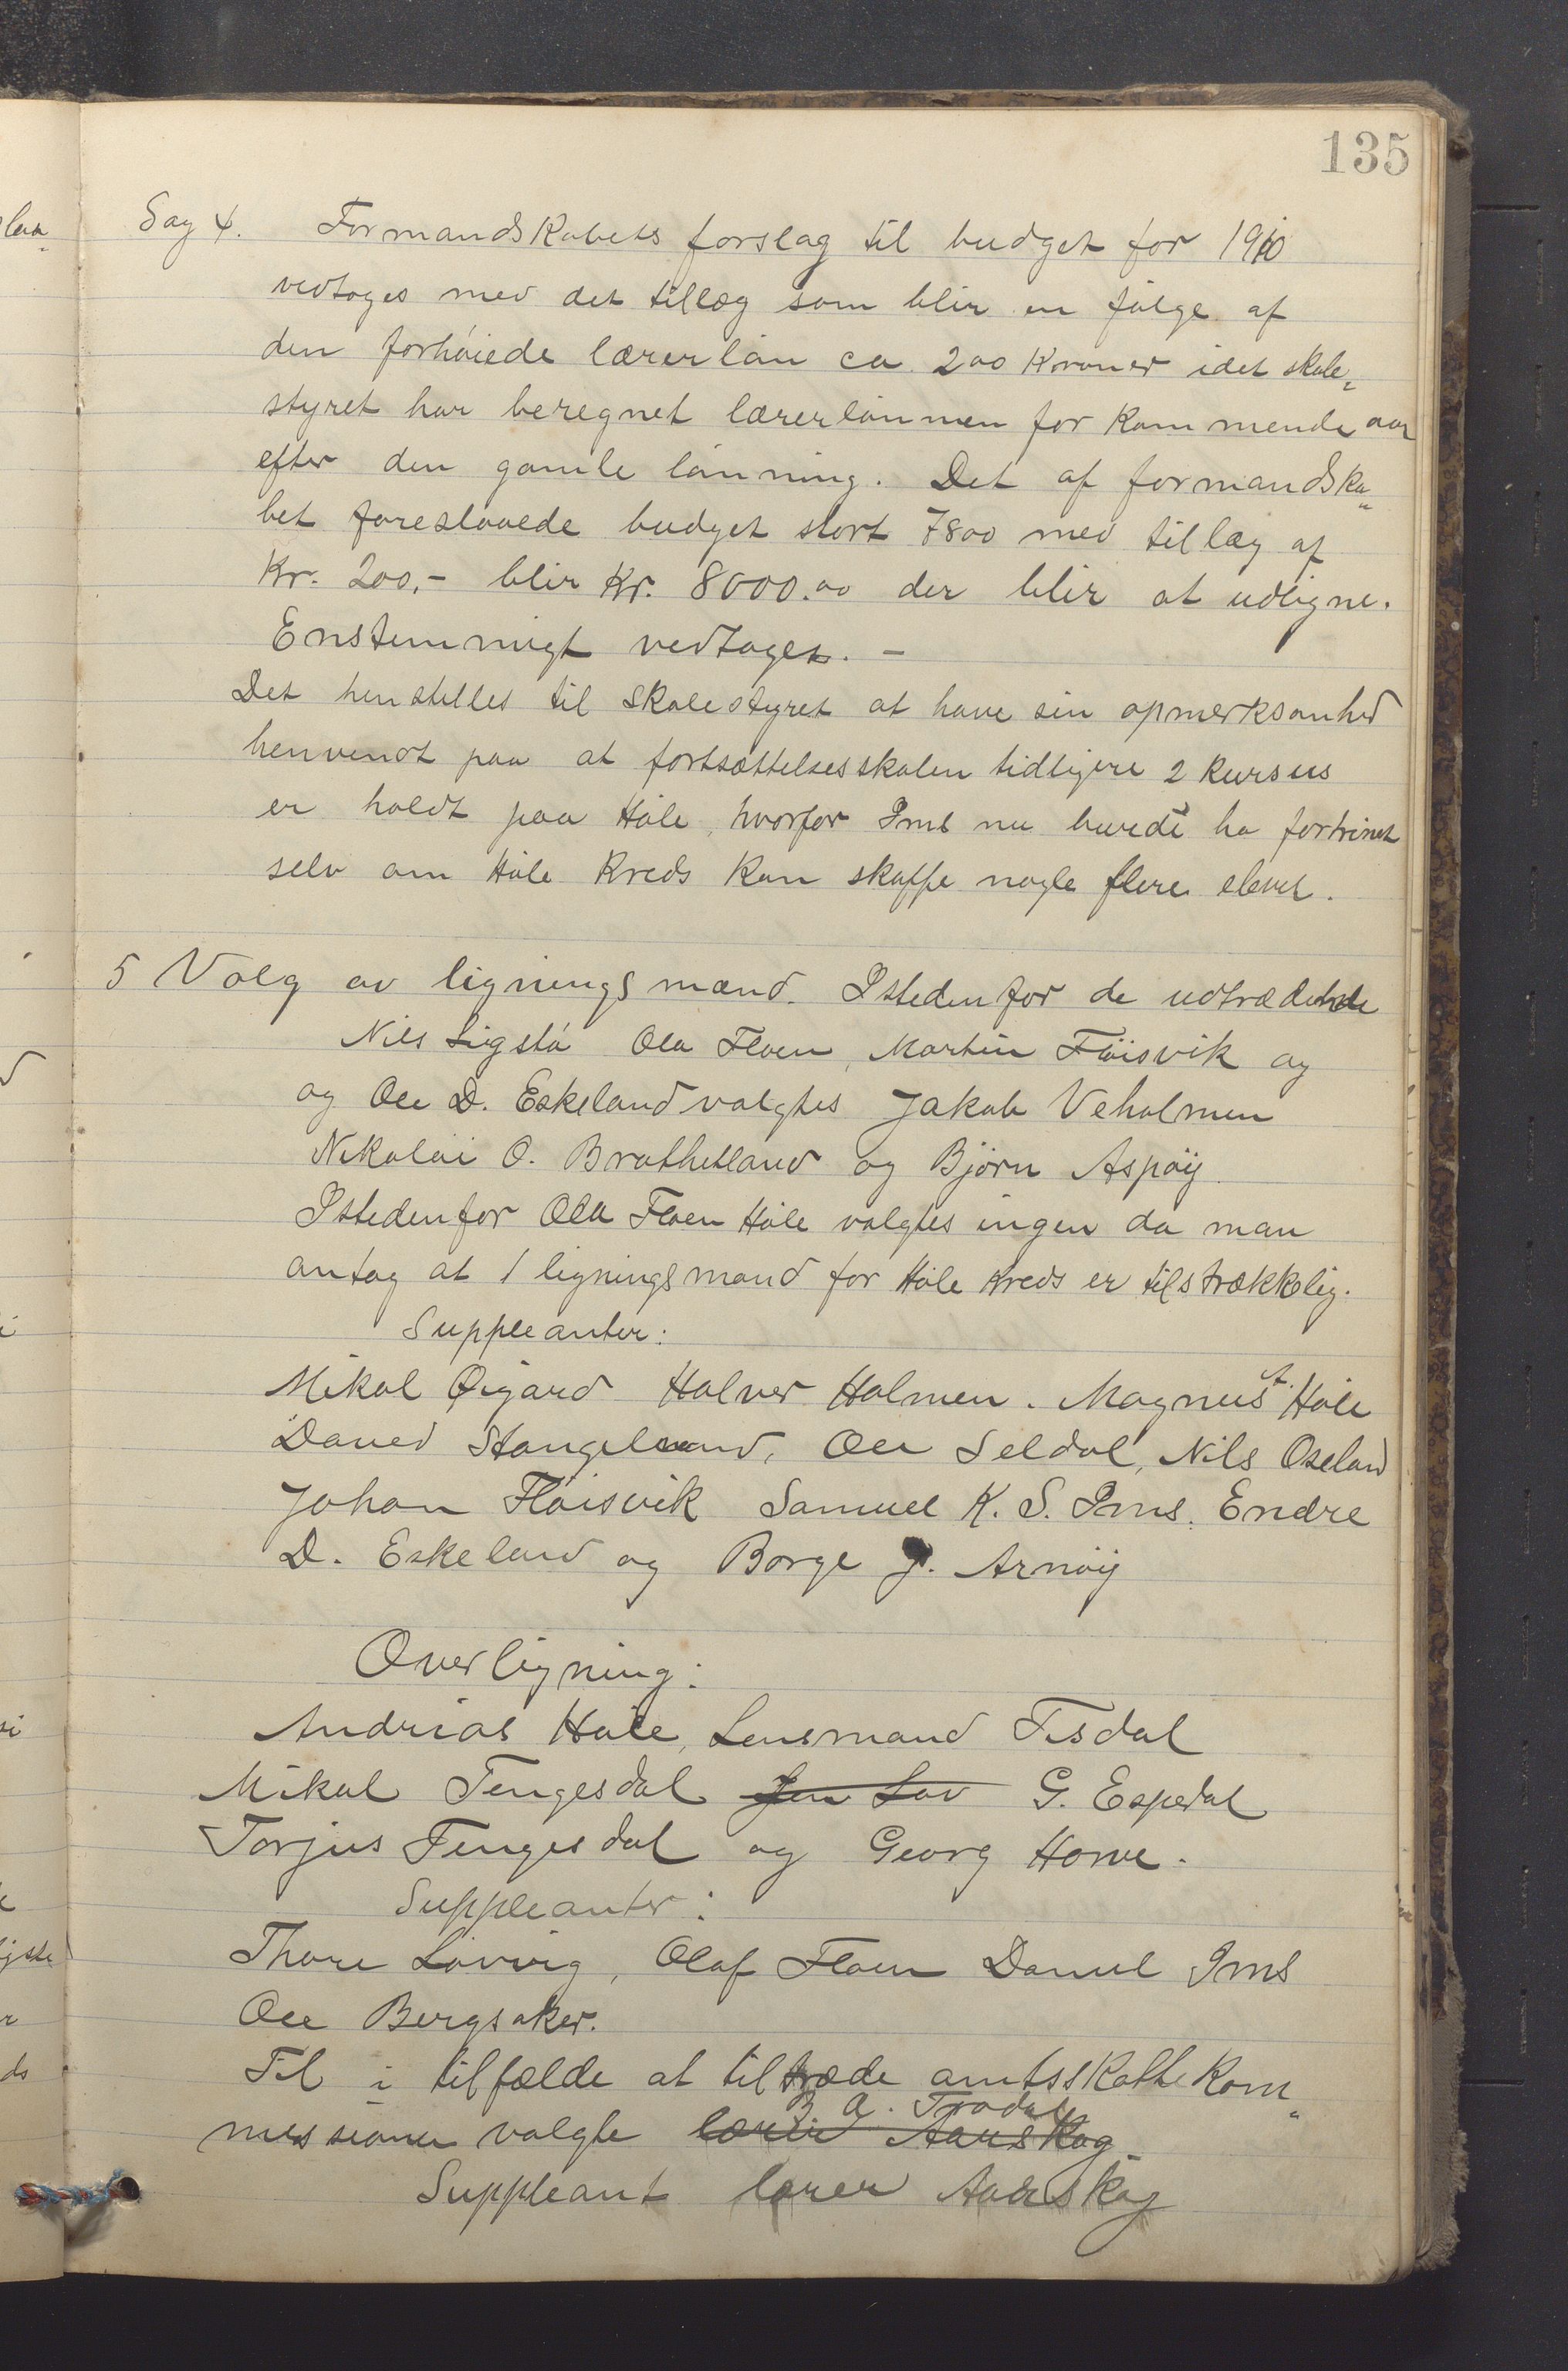 135
Sag 4. Formandskabets forslag til budget for 1910
vedtoges med det tillæg som blir en følge af
den forhøiede lærerløn ca 200 Kroner idet skole„
styret har beregnet lærerlønnen for kommende aar
efter den gamle lønning. Det af formandska„
bet foreslaaede budget stort 7800 med tillæg af
Kr. 200,- blir Kr. 8000.00 der blir at udligne.
Enstemmigt vedtaget. –
Det henstilles til skolestyret at have sin opmerksomhed
henvendt paa at fortsættelsesskolen tidligere 2 kursus
er holdt paa Høle, hvorfor Ims nu burde ha fortrinet
selv om Høle Kreds kan skaffe nogle flere elever.
5 Valg av ligningsmænd. Istedenfor de udtrædende
Nils Ligstø Ola Floen, Martin Fløisvik og
og Ole D. Eskeland valgtes Jakob Veholmen
Nikolai O. Brathetland og Bjørn Aspøy
Istedenfor Ola Floen Høle valgtes ingen da man
antog at 1 ligningsmand for Høle Kreds er tilstrækkelig.
Suppleanter:
Mikal Øigard Halver Holmen. Magnus A. Høle
Daned Stangeland, Ole Seldal, Nils Oseland
Johan Fløisvik Samuel K. S. Ims. Endre
D. Eskeland og Borge J. Arnøy
Overligning:
Andrias Høle, Lensmand Tisdal
Mikal Tengesdal Jen Lov G. Espedal
Torjus Tengesdal og Georg Horve.
Suppleanter:
Thore Løvvig, Olaf Floen Daniel Ims
Ole Bergsaker.
Til i tilfælde at tiltræde amtsskattekom„
missionen valgte lærer Aarskog B. A. Trodal
Suppleant lærer Aarskog